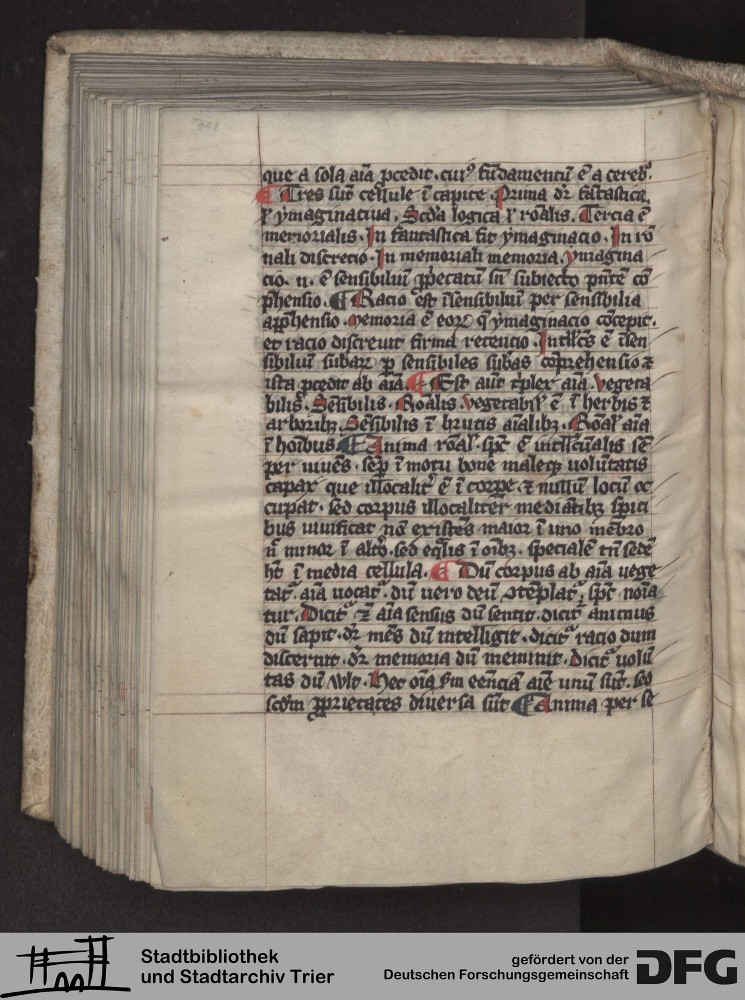 que a sola aīa ꝓcedit · cuiꝰ fūdamentū ē a cereb̄.
¶ Tres sūt cellule ī capite · Prima dr̄ fātastica,
ł ymaginatiua, Scd̓a logica ł rōalis, Tercia ē
memorialis · In fantastica fit ymaginacio · In rō
nali discrecio · In memoriali memoria, ymagina
cio · n · ē sensibiliū
phensio · ¶ Racio est īsensibiliū per sensibilia
appͥhensio · Memoria ē eoꝝ q̄ ymaginacio cōcepit ·
et racio discreuit firma retencio · Intllc̄s ē īsen
sibiliū subaꝝ p̱ sensibiles sūbas cōprehensio ⁊
ista ꝓcedit ab aīa ¶ Est aūt tͥplex aīa · vegeta
bilis · Sēsibilis · Rōalis · vegetabil̓ ē ī herbis ⁊
arboribꝫ, Sēsibilis ī brutis aīalibꝫ · Rōal̓ aīa
ī hoībus ¶ Anima rōal̓ · spc̄ ē intllc̄ualis sē
per viuēs · sēp̱ ī motu bone maleqꝫ volūtatis
capax que illocalit̓ ē ī corpe · ⁊ nullū locū oc
cupat · sed corpus illocaliter mediātibꝫ spiri
bus viuificat nō existēs maior ī uno mēbro
n̄ minor ī alt̓o · sed eq̄lis ī oībꝫ · specialē tn̄ sedē
hꝫ ī media cellula · ¶ Dū corpus ab aīa vege
tat᷑ · aīa vocat᷑ · dū vero deū ꝯtēplat᷑, spc̄ noīa
tur · Dicit᷑ ⁊ aīa sensus dū sentit · dicit᷑ animus
dū sapit · dr̄ mēs dū intelligit · dicit᷑ racio dum
discernit · dr̄ memoria dū meminit · Dicit᷑ volū
tas dū vlt · Hec oīa ẜm eēnciā aīe unū sūt · sed
scdm ꝓprietates diuersa sūt ¶ Anima per se
Stadtbibliothek
und Stadtarchiv Trier
gefördert von der
Deutschen Forschungsgemeinschaft
DFG